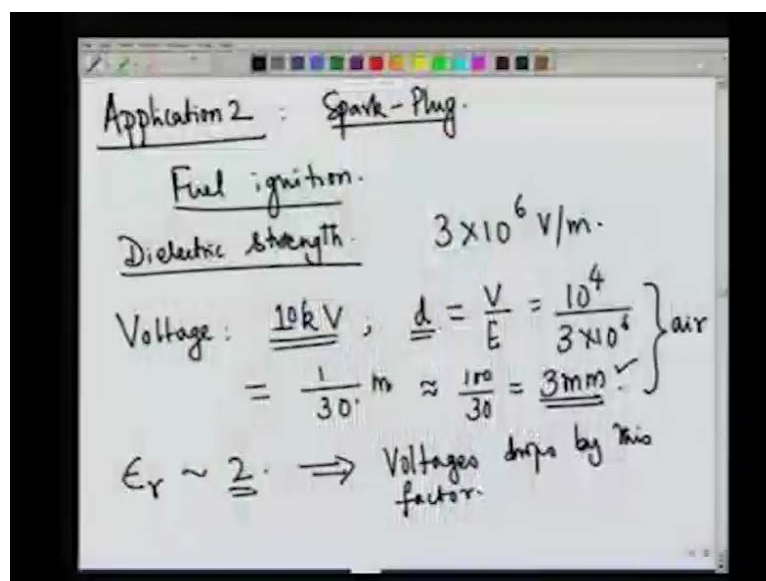 Application 2 : Spark-Plug.
Fuel ignition.
Dielectric strength. 3×10⁶ V/m.
Voltage: 10kV, d = V/E = 10⁴/3×10⁶ } air
= 1/30 m ≈ 100/30 = 3mm ✓
ϵᵣ ~ 2. ⟹ Voltages drops by this
factor.